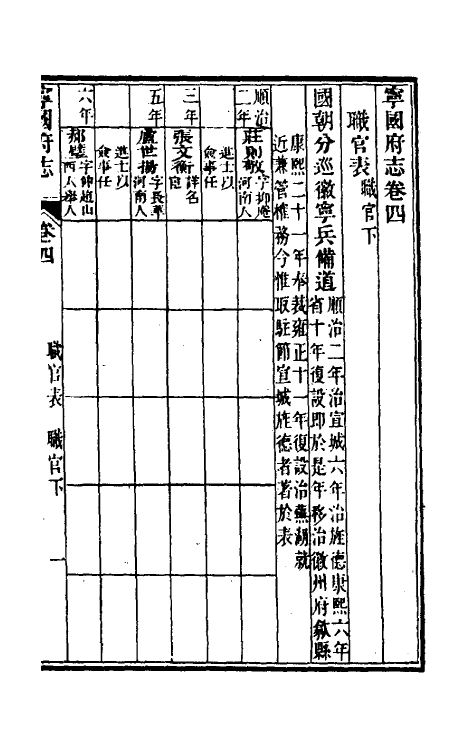 寧國府志卷四
職官表職官下
國朝分巡徽寧兵備道順治二年治宣城六年治旌德康熙六年
省十年復設即於是年移治徽州府歙縣
康熙二十一年奉裁雍正十一年復設治蕪湖就
近兼管榷務今惟取駐節宣城旌德者著於表
順治二年
莊則敬字抑庵河南人
進士以僉事任
三年
張文衡詳名宦
僉事任
五年
盧世揚字長華河南人
進士以僉事任
六年
西人舉人
寧國府志
卷四
職官表 職官下
一